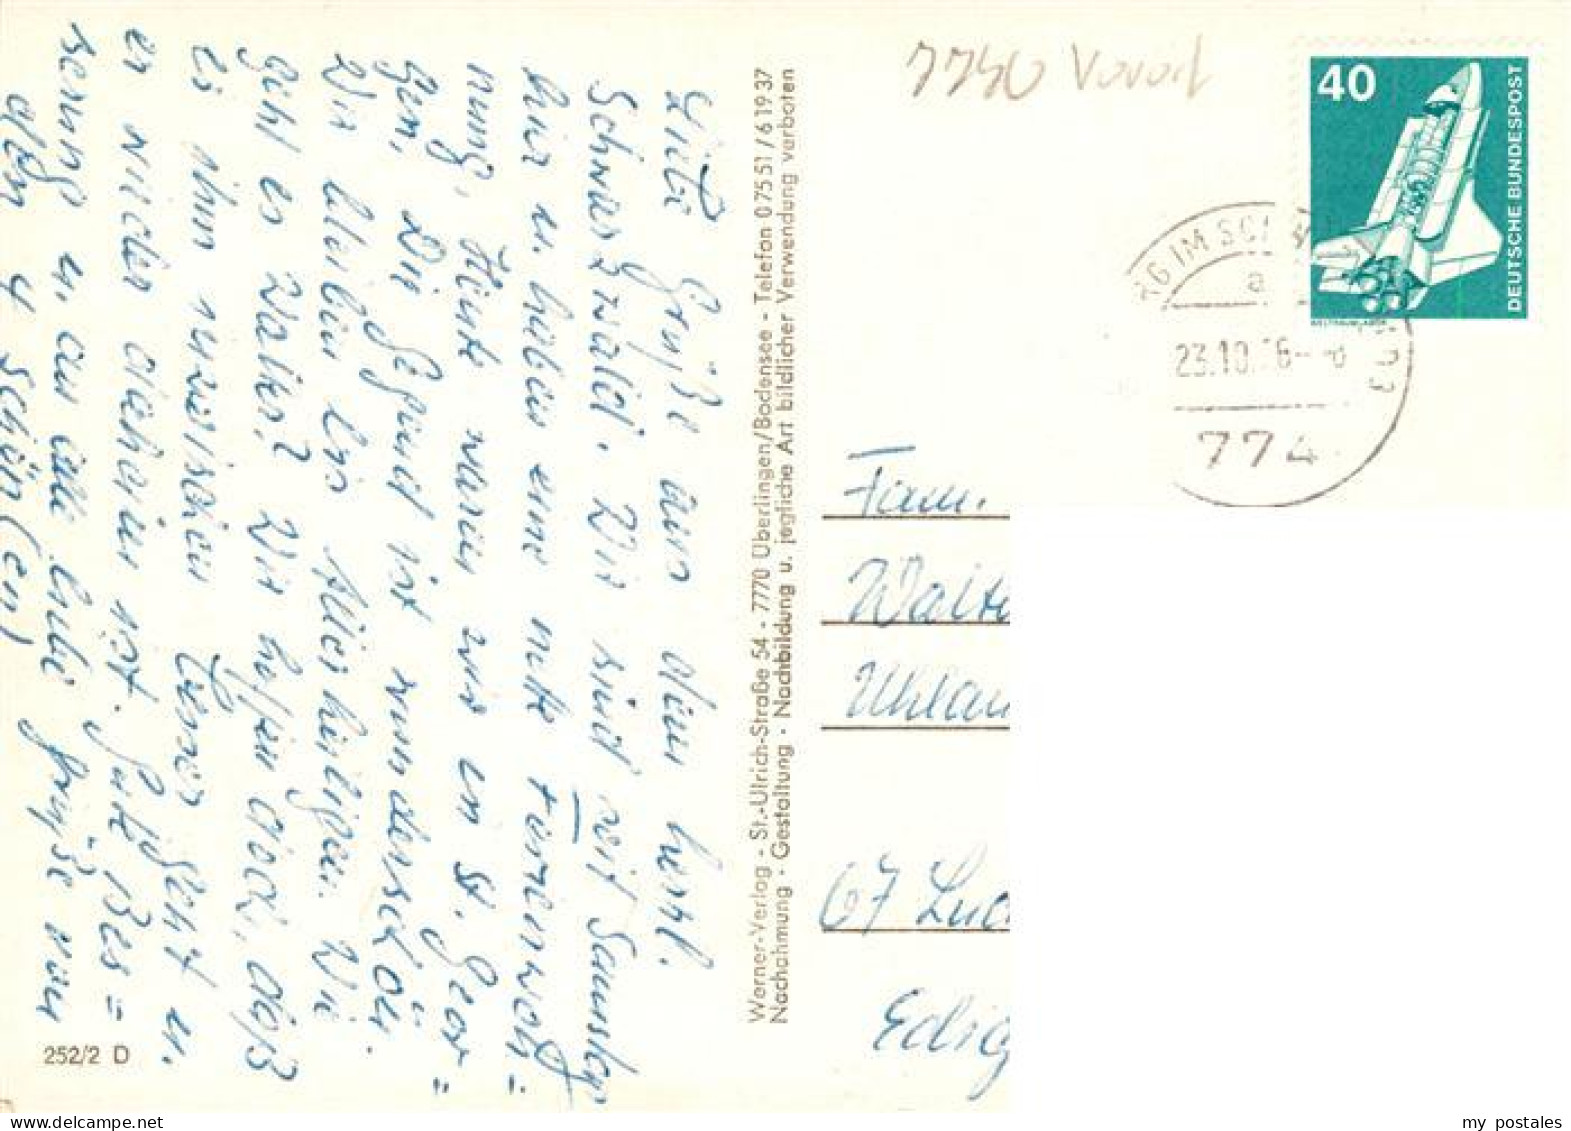 Liebe Grüße aus dem herzl.
Schwarzwald. Wir sind seit Samstag
hier u. haben eine nette Ferienwoh=
nung, Heute waren wir in St. Geor=
gen, Die Gegend ist wunderschön.
Wir bleiben bis Allerheiligen. Wie
geht es Walter? Wir hoffen doch, daß
es ihm inzwischen besser geht u.
er wieder daheim ist. Gute Bes=
serung u. an alle liebe Grüße von
den 4 Schön(en)
252/2 D
Werner-Verlag - St.-Ulrich-Straße 54 - 7770 Überlingen/Bodensee - Telefon 0 75 51 / 6 19 37
Nachahmung · Gestaltung · Nachbildung u. jegliche Art bildlicher Verwendung verboten
40
DEUTSCHE BUNDESPOST
WELTRAUMLABOR
RG IM SCH
a
23.10.
774
Fam.
Walte
Uhlan
67 Lud
Edig
my postales